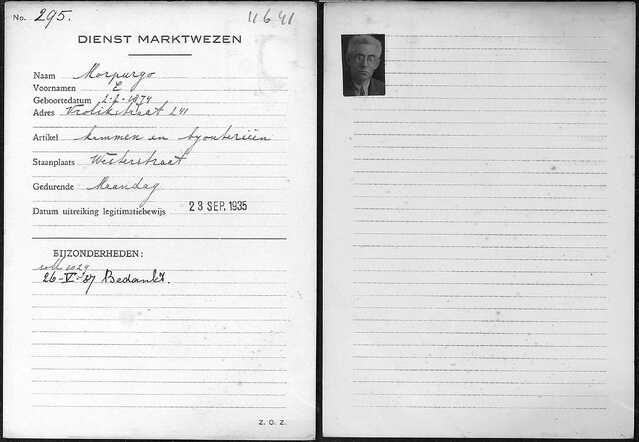 No. 295.
11641
DIENST MARKTWEZEN
Naam Morpurgo
Voornamen E
Geboortedatum 2-7-1874
Adres Vrolikstraat 241
Artikel kammen en byouterieën
Staanplaats Westerstraat
Gedurende Maandag
Datum uitreiking legitimatiebewijs 23 SEP. 1935
BIJZONDERHEDEN:
1029
26-V-'37 Bedankt.
Z. O. Z.